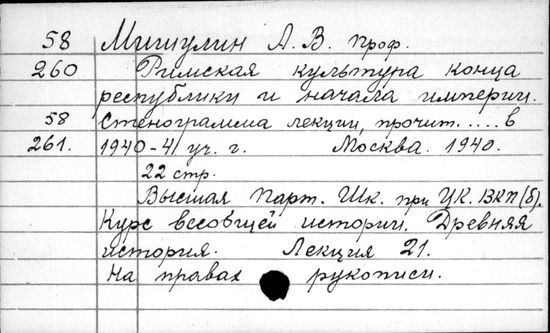 58 Мишулин А. В. проф.
260 Римская культура конца
республики и начала империи.
58 Стенограмма лекции, прочит.....в
261. 1940-41 уч. г. Москва. 1940.
22 стр.
Высшая Парт. Шк. при ЦК. ВКП(б).
Курс всеобщей истории. Древняя
история. Лекция 21.
На правах рукописи.